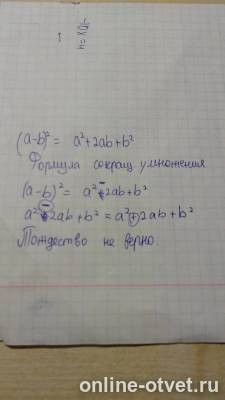 -10x = 4
(a-b)² = a²+2ab+b²
Формула сокращ. умножения
(a-b)² = a²-2ab+b²
a²-2ab+b² = a²+2ab+b²
Тождество не верно.
online-otvet.ru